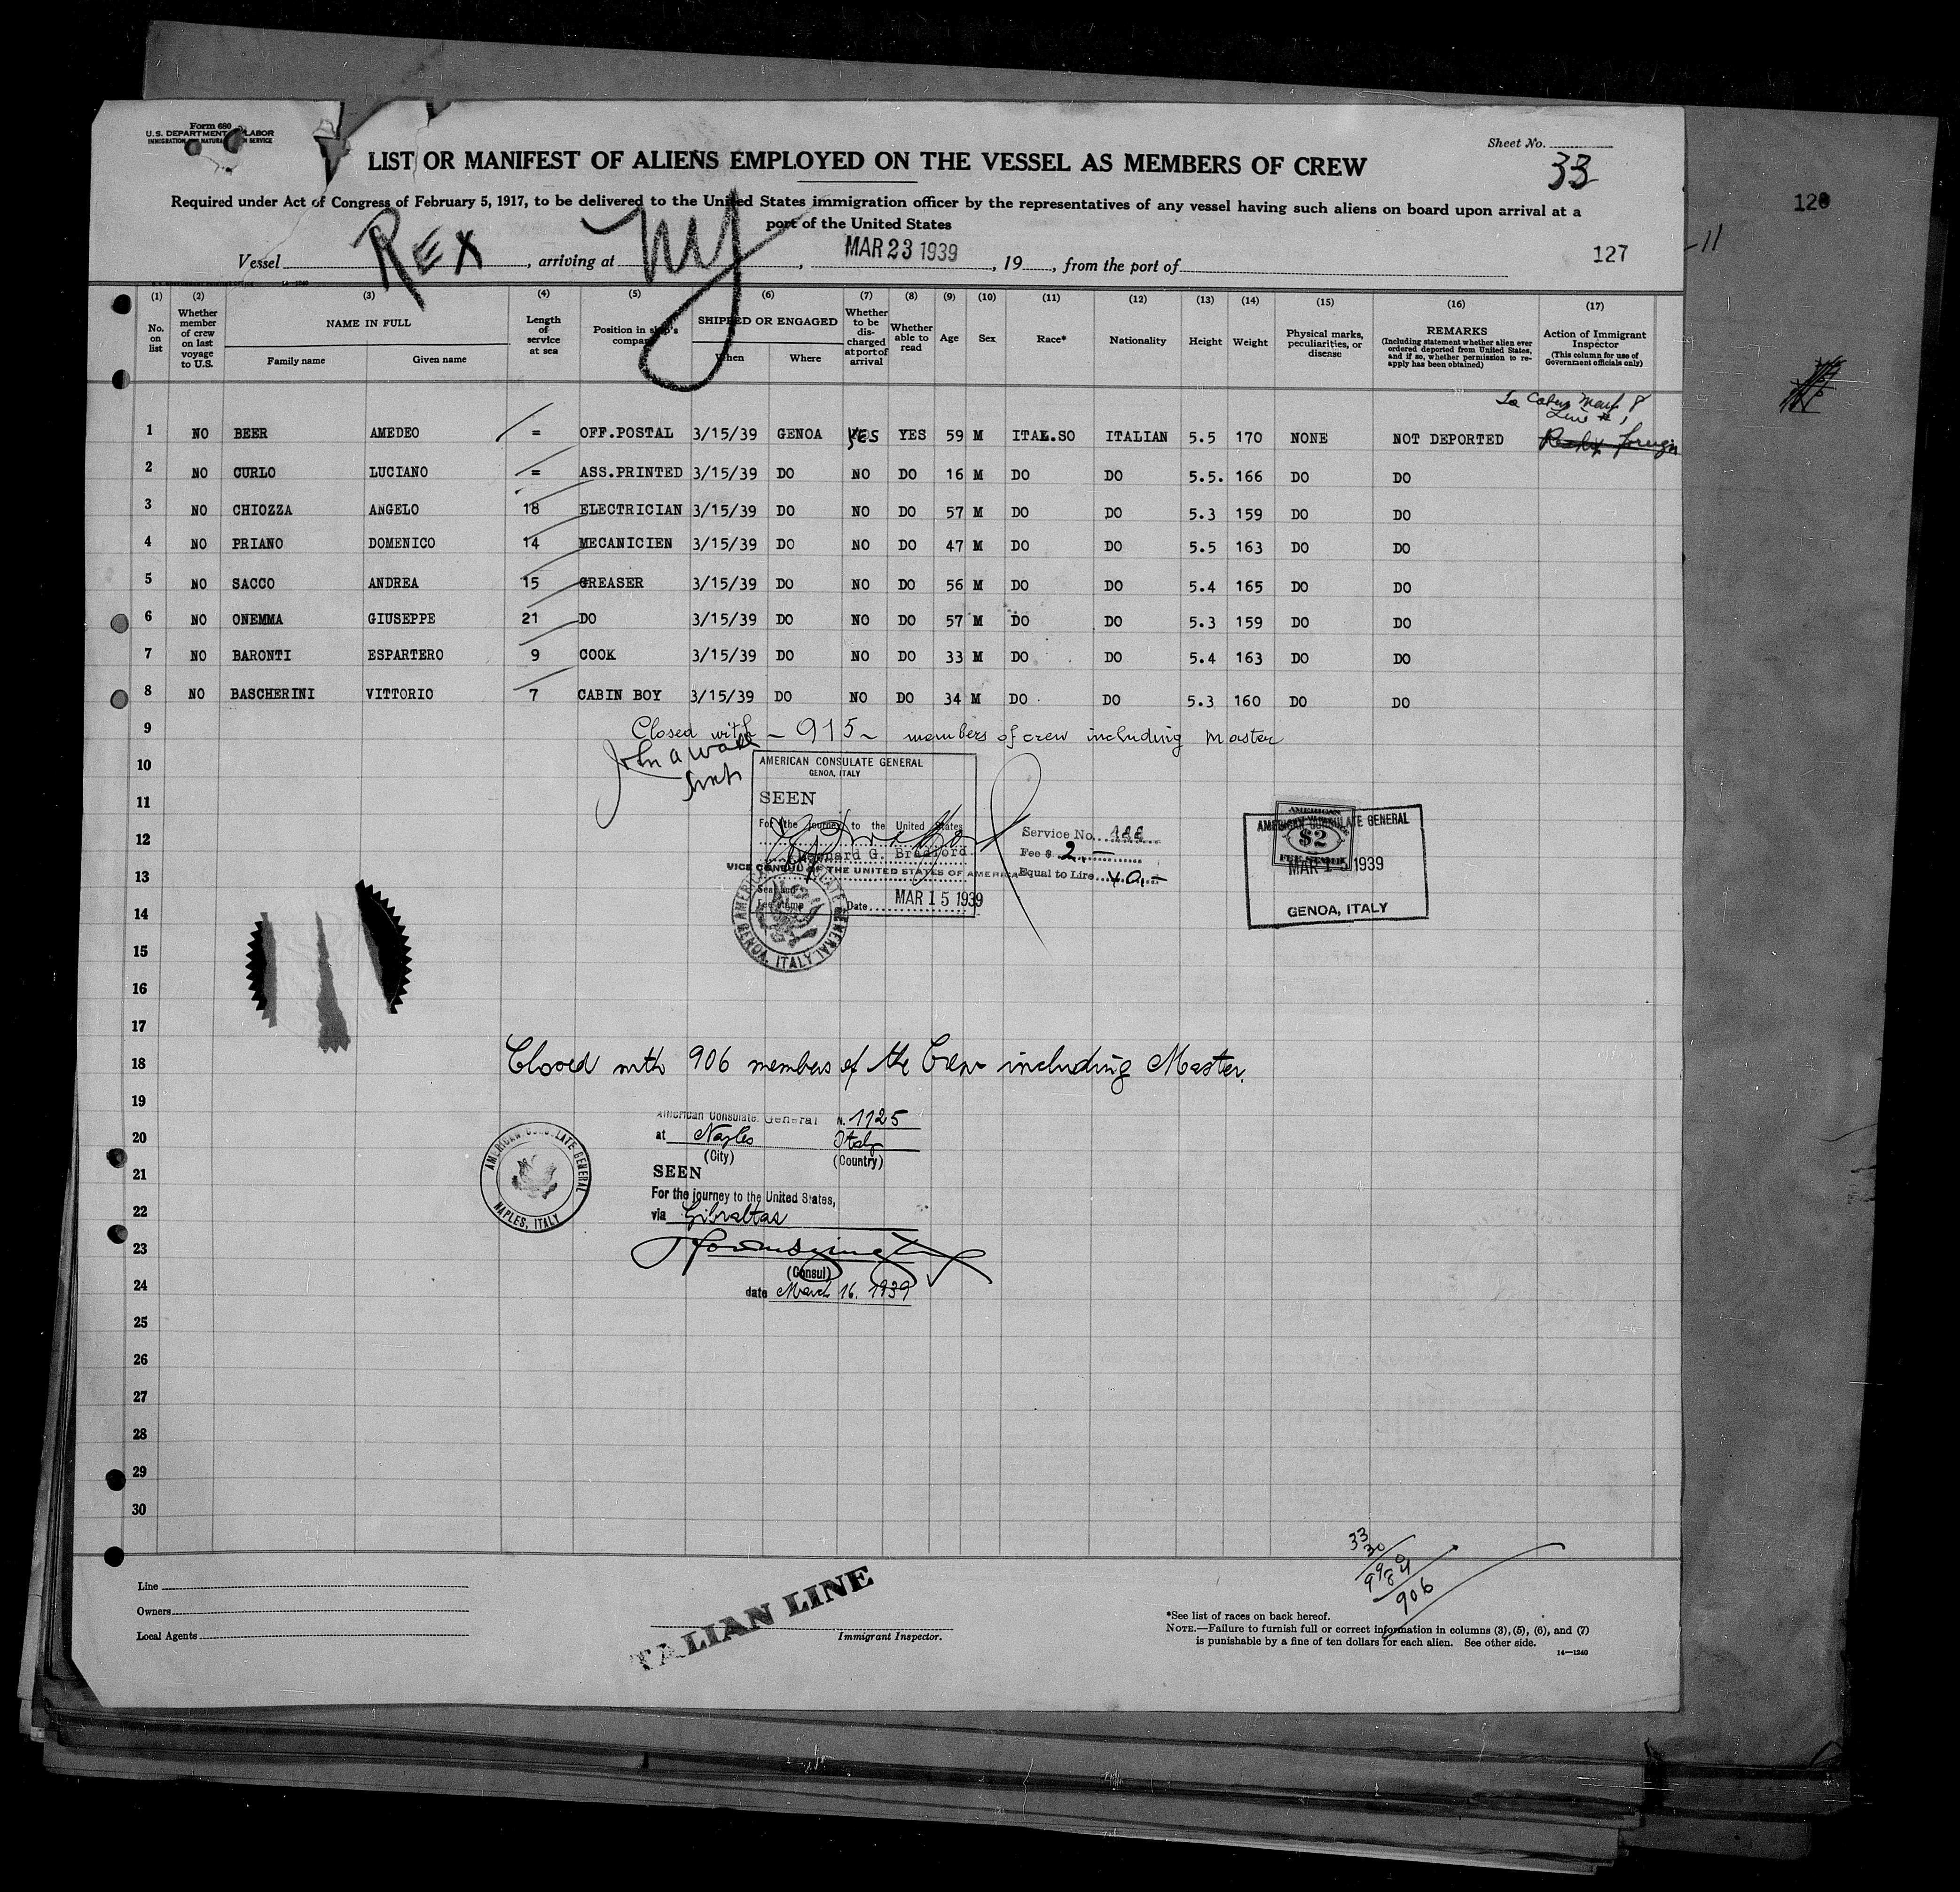 Form 680
U.S. DEPARTMENT LABOR
IMMIGRATION NATURA N SERVICE
Sheet No.
33
LIST OR MANIFEST OF ALIENS EMPLOYED ON THE VESSEL AS MEMBERS OF CREW
Required under Act of Congress of February 5, 1917, to be delivered to the United States immigration officer by the representatives of any vessel having such aliens on board upon arrival at a
port of the United States
128
-11
127
Vessel REX, arriving at NY, MAR 23 1939, 19, from the port of
(1) (2) (3) (4) (5) (6) (7) (8) (9) (10) (11) (12) (13) (14) (15) (16) (17)
No. on list
Whether member of crew on last voyage to U.S.
NAME IN FULL
Family name Given name
Length of service at sea
Position in ship's company
SHIPPED OR ENGAGED
When Where
Whether to be discharged at port of arrival
Whether able to read
Age Sex Race* Nationality Height Weight
Physical marks, peculiarities, or disease
REMARKS
(Including statement whether alien ever ordered deported from United States, and if so, whether permission to re-apply has been obtained)
Action of Immigrant Inspector
(This column for use of Government officials only)
Line # 1
1 NO BEER AMEDEO = OFF.POSTAL 3/15/39 GENOA YES YES 59 M ITAL.SO ITALIAN 5.5 170 NONE NOT DEPORTED
2 NO CURLO LUCIANO = ASS.PRINTED 3/15/39 DO NO DO 16 M DO DO 5.5. 166 DO DO
3 NO CHIOZZA ANGELO 18 ELECTRICIAN 3/15/39 DO NO DO 57 M DO DO 5.3 159 DO DO
4 NO PRIANO DOMENICO 14 MECANICIEN 3/15/39 DO NO DO 47 M DO DO 5.5 163 DO DO
5 NO SACCO ANDREA 15 GREASER 3/15/39 DO NO DO 56 M DO DO 5.4 165 DO DO
6 NO ONEMMA GIUSEPPE 21 DO 3/15/39 DO NO DO 57 M DO DO 5.3 159 DO DO
7 NO BARONTI ESPARTERO 9 COOK 3/15/39 DO NO DO 33 M DO DO 5.4 163 DO DO
8 NO BASCHERINI VITTORIO 7 CABIN BOY 3/15/39 DO NO DO 34 M DO DO 5.3 160 DO DO
9 Closed with - 915 - members of crew including Master
10
11
12
13
14
15
16
17
18 Closed with 906 members of the Crew including Master.
19
20
21
22
23
24
25
26
27
28
29
30
AMERICAN CONSULATE GENERAL
GENOA, ITALY
SEEN
For the journey to the United States
G. Bradford
VICE CONSUL OF THE UNITED STATES OF AMERICA
Seal and
Fee stamp
Date MAR 15 1939
AMERICAN CONSULATE GENERAL
GENOA, ITALY
Service No.
Fee $ 2.-
Equal to Lire 40,-
AMERICAN
$2
FEE STAMP
AMERICAN CONSULATE GENERAL
MAR 15 1939
GENOA, ITALY
AMERICAN CONSULATE GENERAL
NAPLES, ITALY
American Consulate General N. 1125
at Naples Italy
(City) (Country)
SEEN
For the journey to the United States,
via Gibraltar
(Consul)
date March 16. 1939
33
30
990
84
906
Line
Owners
Local Agents
TALIAN LINE
Immigrant Inspector.
*See list of races on back hereof.
NOTE.—Failure to furnish full or correct information in columns (3), (5), (6), and (7)
is punishable by a fine of ten dollars for each alien. See other side.
14—1240